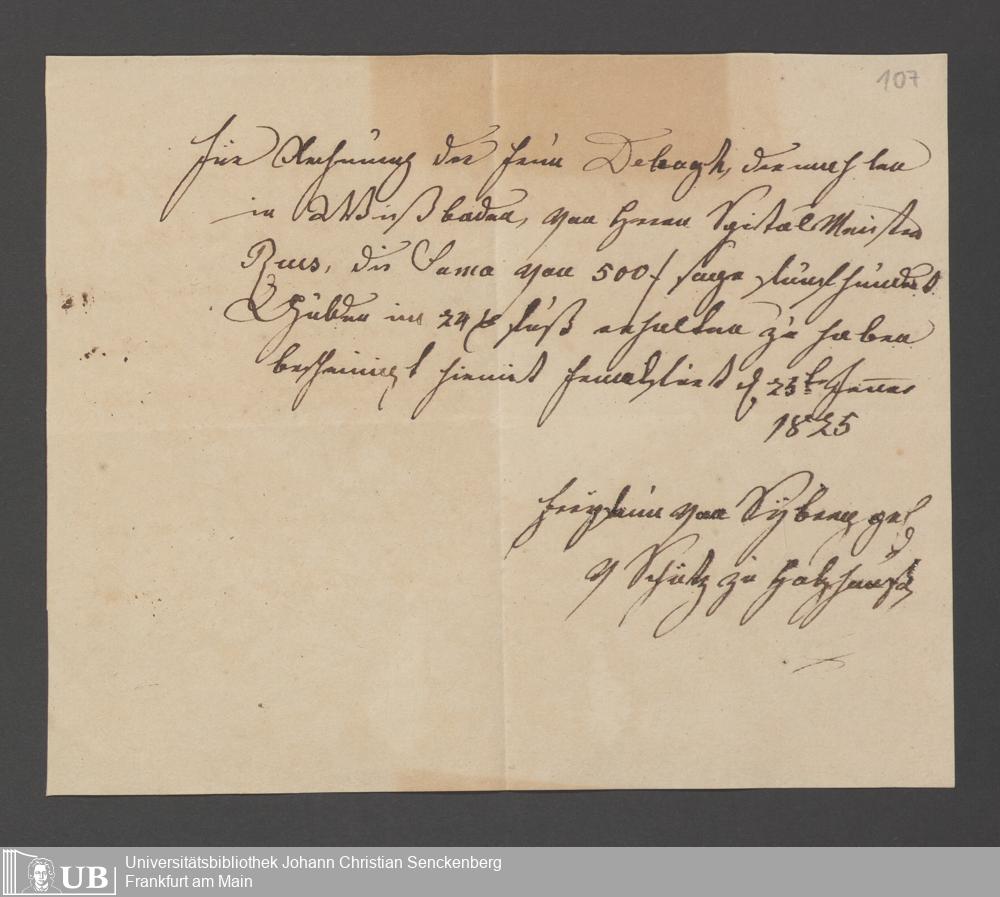 107
Für Rechnung der Frau Debagh,
in Wießbaden, von Herrn Spital Meister
die Suma von 500 f sage fünfhundert
Gulden im 24 f fuß erhalten zu haben
bescheinigt hiemit d 25te Jenner
1825
von Syberg geb
v Schütz zu Holzhausen
UB
Universitätsbibliothek Johann Christian Senckenberg
Frankfurt am Main